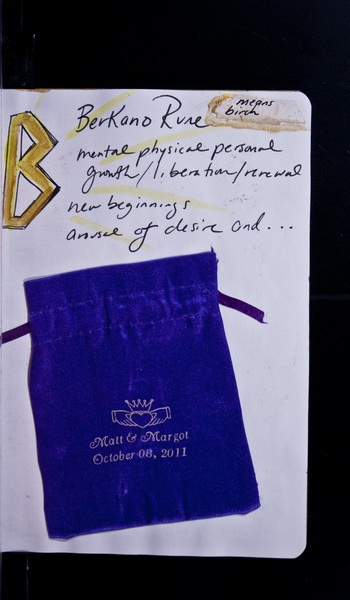 Berkano Rune
means
birch
mental physical personal
growth/liberation/renewal
new beginnings
arousel of desire and...
Matt & Margot
October 08, 2011